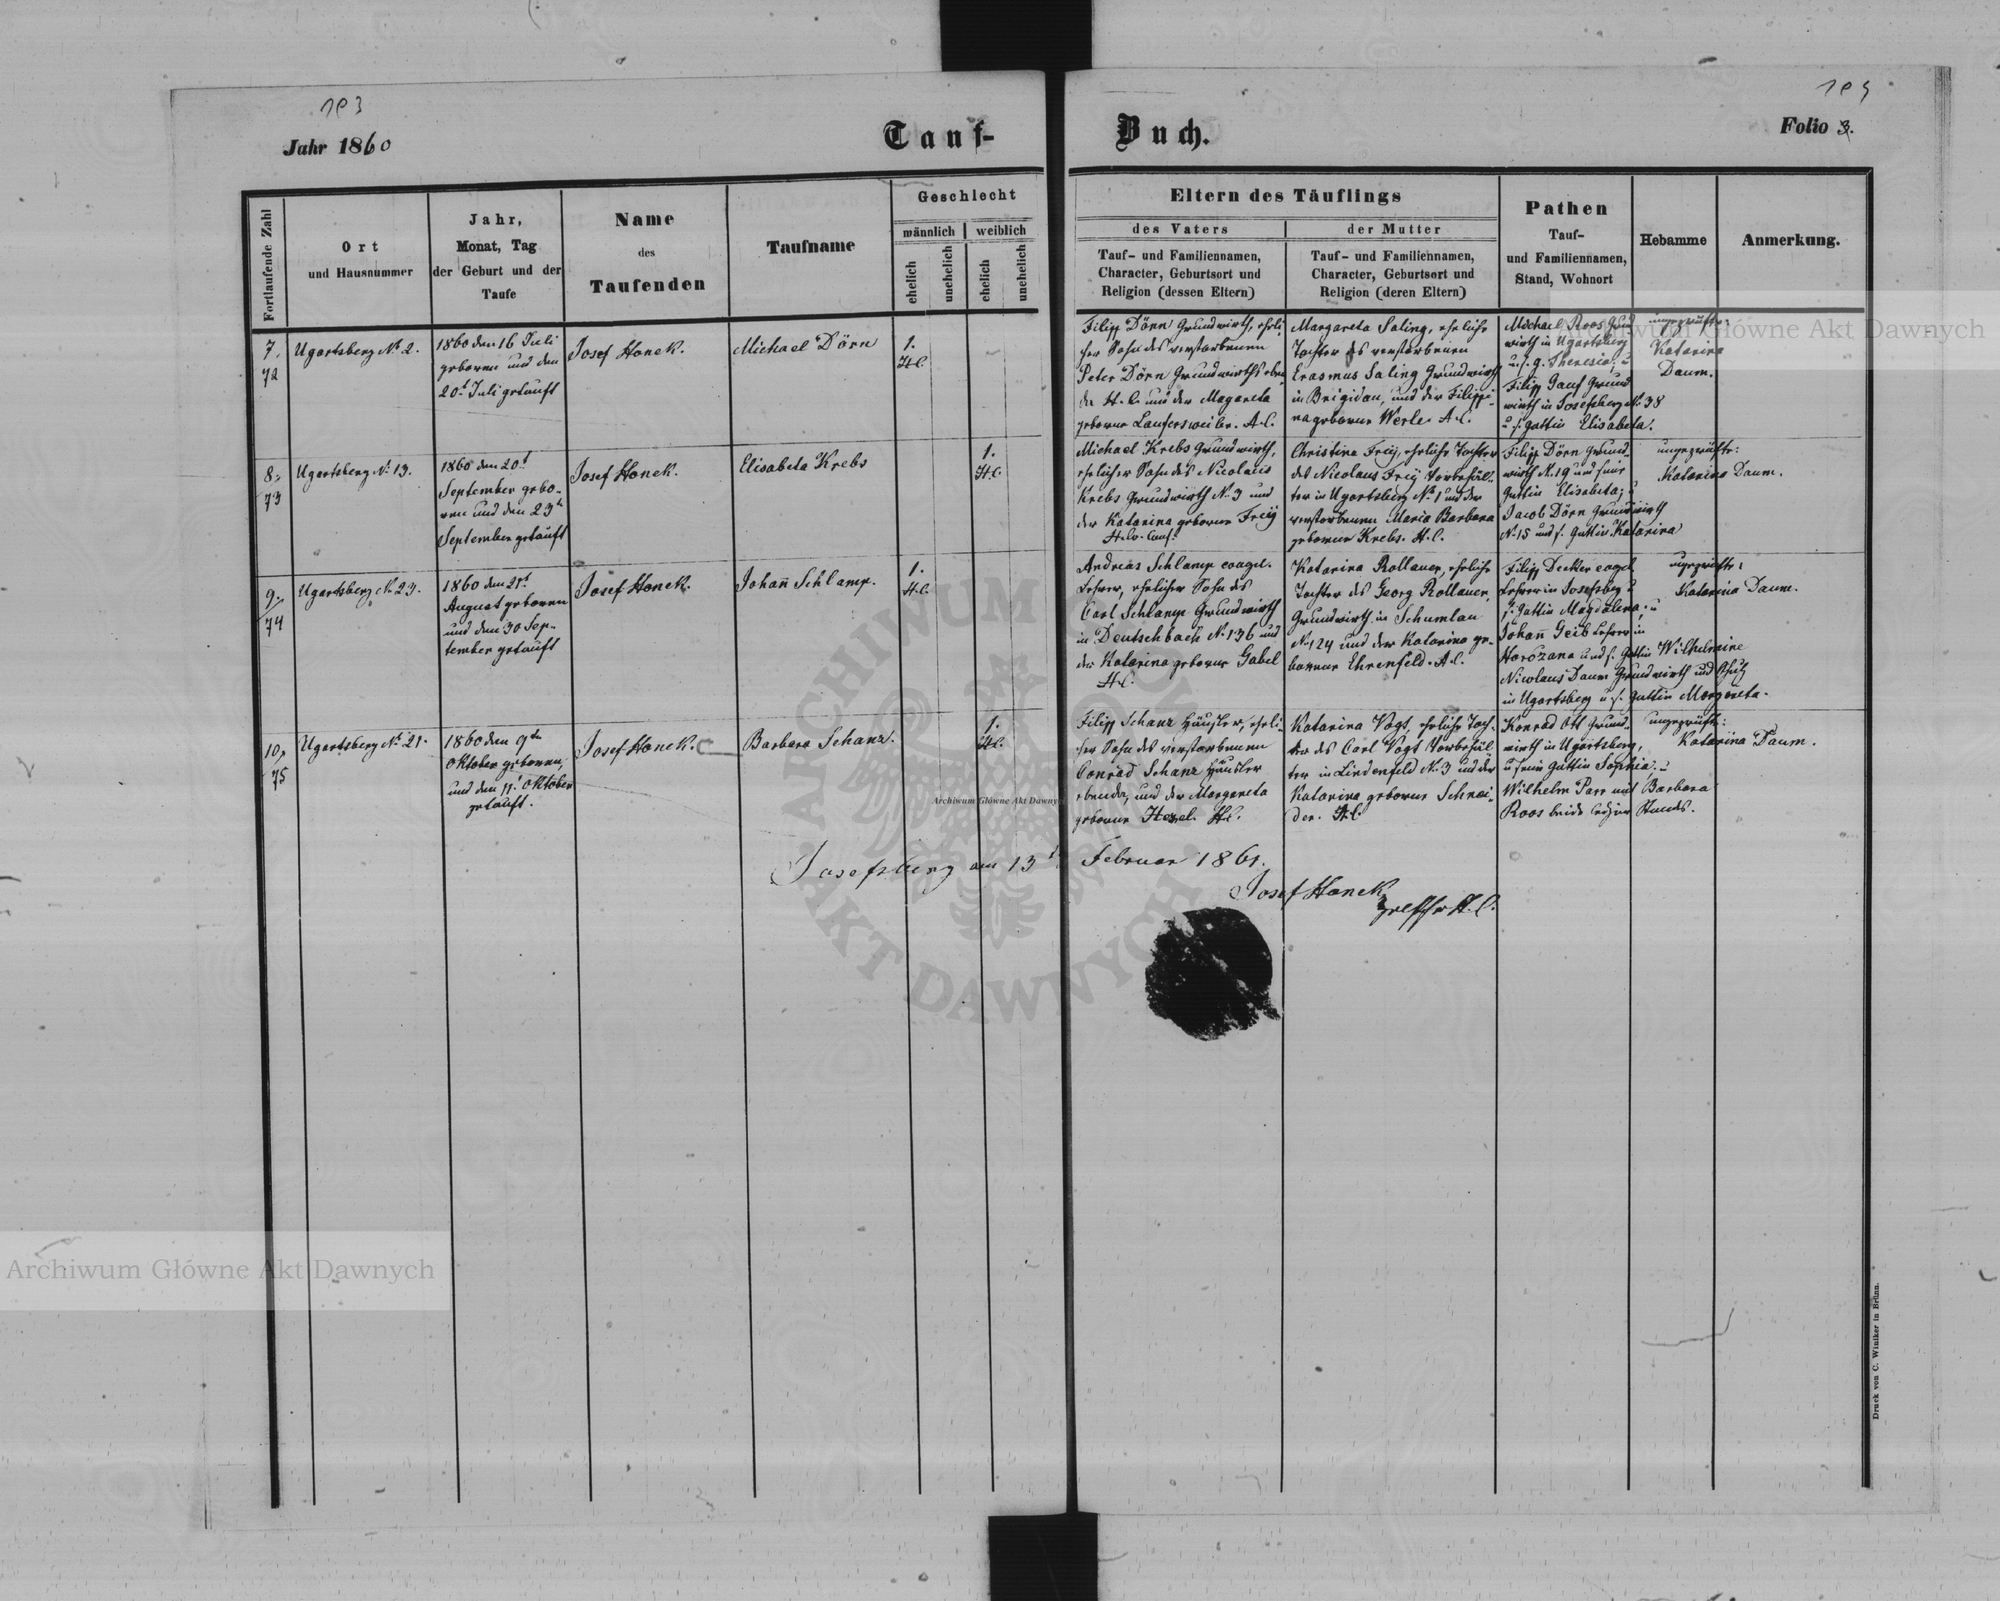 193
194
Jahr 1860
Tauf-
Buch.
Folio 3.
Fortlaufende Zahl
Ort
und Hausnummer
Jahr,
Monat, Tag
der Geburt und der
Taufe
Name
des
Taufenden
Taufname
Geschlecht
männlich
weiblich
ehelich
unehelich
ehelich
unehelich
Eltern des Täuflings
des Vaters
Tauf- und Familiennamen,
Character, Geburtsort und
Religion (dessen Eltern)
der Mutter
Tauf- und Familiennamen,
Character, Geburtsort und
Religion (deren Eltern)
Pathen
Tauf-
und Familiennamen,
Stand, Wohnort
Hebamme
Anmerkung.
7.
72
Ugartsberg No 2.
1860 den 16 Juli
geboren und den
20t Juli getauft
Josef Honek.
Michael Dörn
1.
H.C.
Filipp Dörn Grundwirth, eheli-
cher Sohn des verstorbenen
Peter Dörn Grundwirths eben
da H.C. und der Magareta
geborne Laufersweiler. A.C.
Margareta Saling, eheliche
Tochter des verstorbenen
Erasmus Saling Grundwirth
in Brigidau, und der Filippi-
na geborne Werle. A.C.
Michael Roos Grund
wirth in Ugartsberg
u. s. g. Theresia; u
Filipp Ganf Grund
wirth in Josefsberg No 38
u. s. Gattin Elisabeta.
ungeprüfte:
Katarina
Daum.
8.
73
Ugartsberg No 13.
1860 den 20t
September gebo-
ren und den 23t
September getauft
Josef Honek.
Elisabeta Krebs
1.
H.C.
Michael Krebs Grundwirth,
ehelicher Sohn des Nicolaus
Krebs Grundwirth No 3 und
der Katarina geborne Freij
H.C.
Christina Freij, eheliche Tochter
des Nicolaus Freij Vorbehäl-
ter in Ugartsberg No 1 und der
verstorbenen Maria Barbara
geborne Krebs. H.C.
Filipp Dörn Grund-
wirth No 19 und seine
Gattin Elisabeta; u
Jacob Dörn Grundwirth
No 15 und s. Gattin Katarina
ungeprüfte:
Katarina Daum.
9.
74
Ugartsberg No 23.
1860 den 21t
August geboren
und den 30 Sep-
tember getauft
Josef Honek.
Johann Schlamp.
1.
H.C.
Andreas Schlamp evagel.
Lehrer, ehelicher Sohn des
Carl Schlamp Grundwirth
in Deutschbach No 136 und
der Katarina geborne Gabel
H.C.
Katarina Rollauer, eheliche
Tochter des Georg Rollauer,
Grundwirth in Schumlau
No 124 und der Katarina ge-
borene Ehrenfeld. A.C.
Filipp Decker evagel.
Lehrer in Josefsberg u
s. Gattin Magdalena; u
Johann Geib Lehrer in
Horózana und s. Gattin Wilhelmine
Nicolaus Daum Grundwirth und Schulz
in Ugartsberg u. s. Gattin Margareta.
ungeprüfte:
Katarina Daum.
10.
75
Ugartsberg No 21.
1860 den 9te
Oktober geboren,
und den 11t Oktober
getauft.
Josef Honek.
Barbara Schanz.
1.
H.C.
Filipp Schanz Häusler, eheli-
cher Sohn des verstorbenen
Conrad Schanz Häusler
ebenda, und der Margareta
geborne Hezel. H.C.
Katarina Vogt, eheliche Toch-
ter des Carl Vogt Vorbehäl-
ter in Lindenfeld No 3 und der
Katarina geborne Schnei-
der. A.C.
Konrad Ott Grund-
wirth in Ugartsberg,
u seine Gattin Sophia; u
Wilhelm Parr und Barbara
Roos beide ledigen Standes.
ungeprüft:
Katarina Daum.
Josefsberg am 13t Februar 1861.
Josef Honek
H.C.
Druck von C. Winiker in Brünn.
Archiwum Główne Akt Dawnych
Archiwum Główne Akt Dawnych
Archiwum Główne Akt Dawnych
ARCHIWUM GŁÓWNE
AKT DAWNYCH